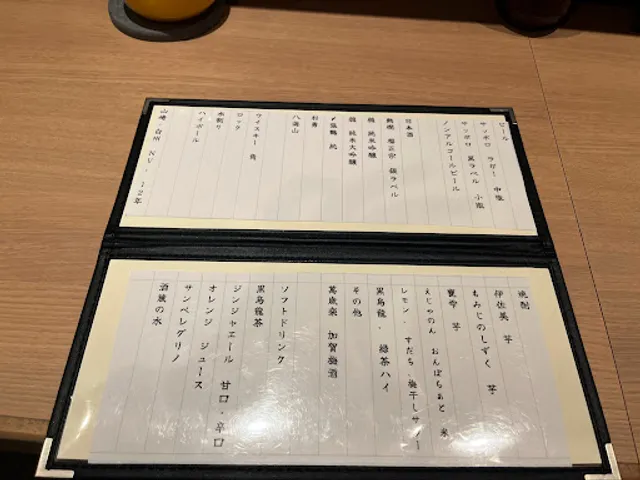 ビール
サッポロ ラガー 中瓶
サッポロ 黒ラベル 小瓶
ノンアルコールビール
日本酒
菊正宗 銀ラベル
純米吟醸
純米大吟醸
〆張鶴 純
八海山
ウイスキー 角
ロック
水割り
ハイボール
山崎・白州 NV・12年
焼酎
伊佐美 芋
もみじのしずく 芋
甕雫 芋
えじゃのん おんぼらぁと 米
レモン・すだち・梅干しサワー
黒烏龍・緑茶ハイ
その他
萬歳楽 加賀梅酒
ソフトドリンク
黒烏龍茶
ジンジャエール 甘口・辛口
オレンジ ジュース
サンペレグリノ
酒蔵の水